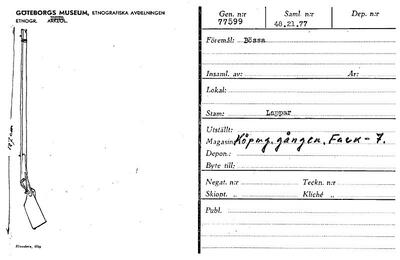 GÖTEBORGS MUSEUM, ETNOGRAFISKA AVDELNINGEN
ETNOGR. ARKEOL.
Gen. n:r Saml. n:r Dep. n:r
77599 40.21.77
Föremål: Bössa
Insaml. av: År:
Lokal:
Stam: Lappar
Utställt:
Magasin: Köpmg. gången, Fack - 7.
Depon.:
Byte till:
Negat. n:r Teckn. n:r
Skiopt. „ Kliché „
Publ.